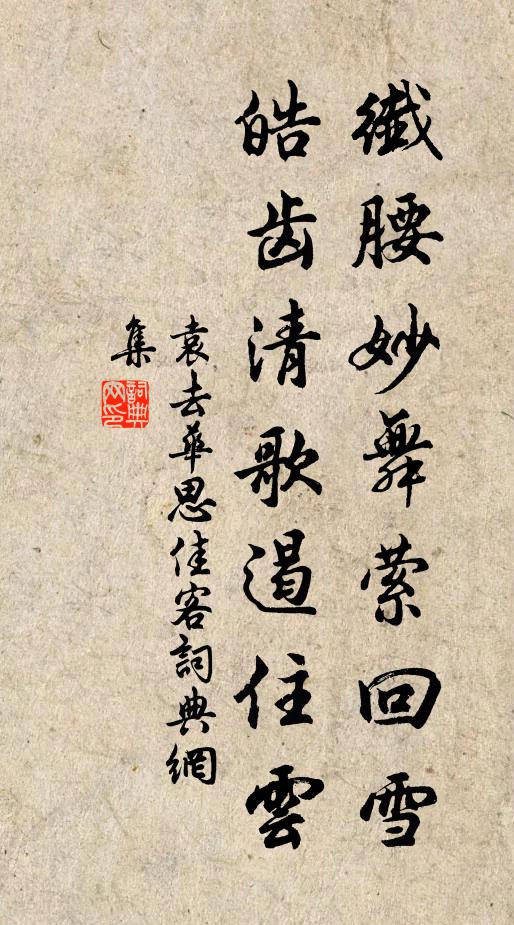 纖腰妙舞縈回雪
皓齒清歌遏住雲
袁去華思佳客詞典網
集
詞典網印